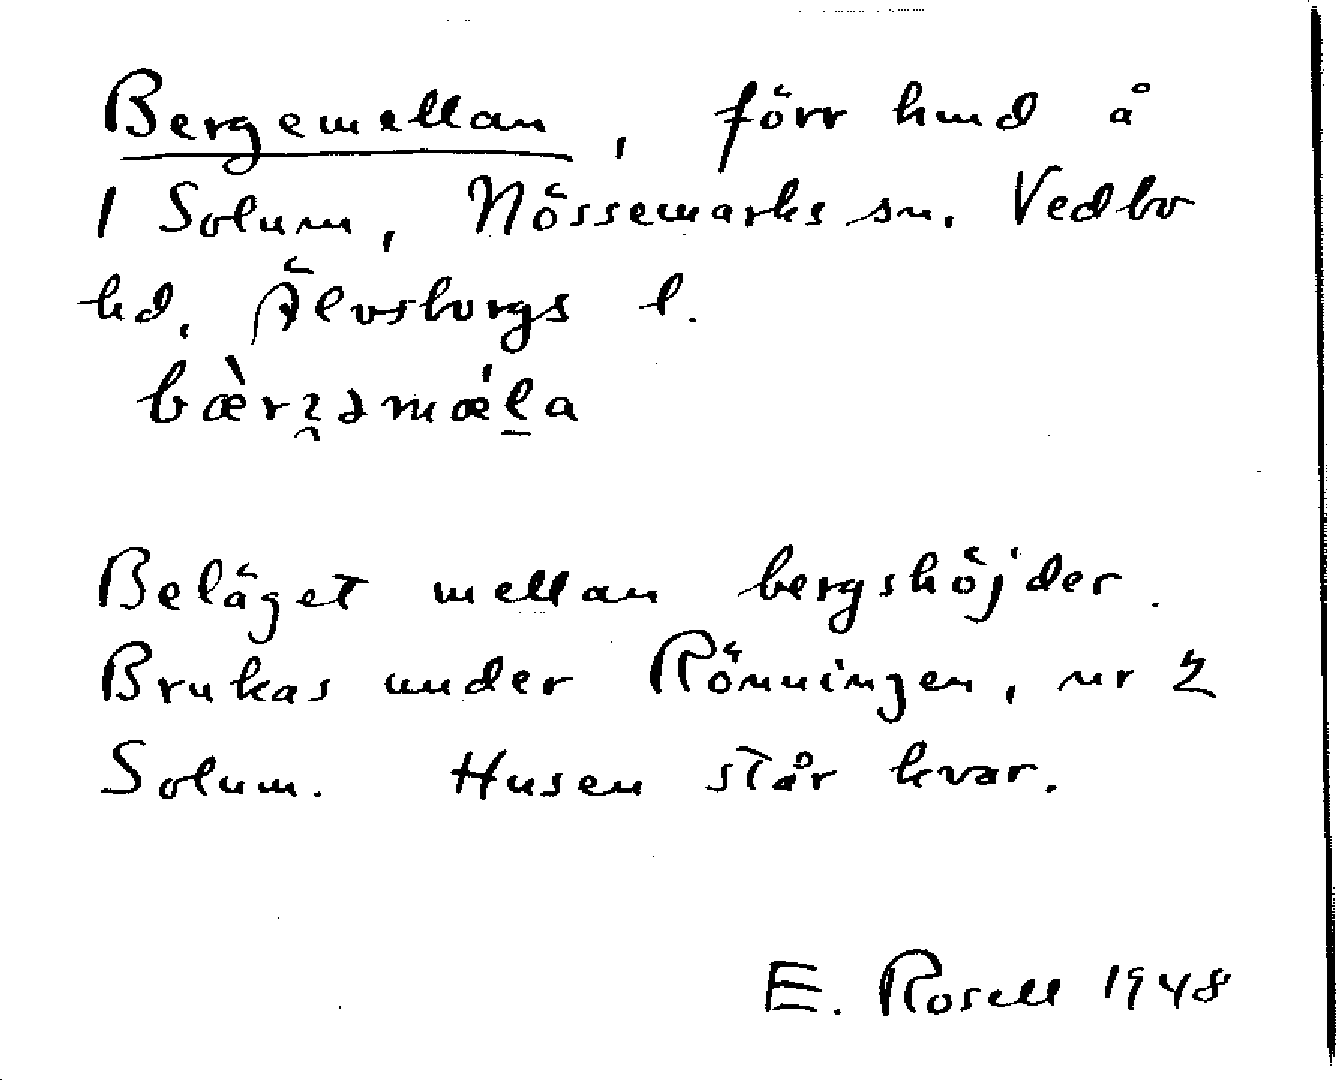 Bergemellan, förr hmd å
1 Solum, Nössemarks sn. Vedbo
hd. Älvsborgs l.
Beläget mellan bergshöjder.
Brukas under Rönningen, nr 2
Solum. Husen står kvar.
E. Rosell 1948